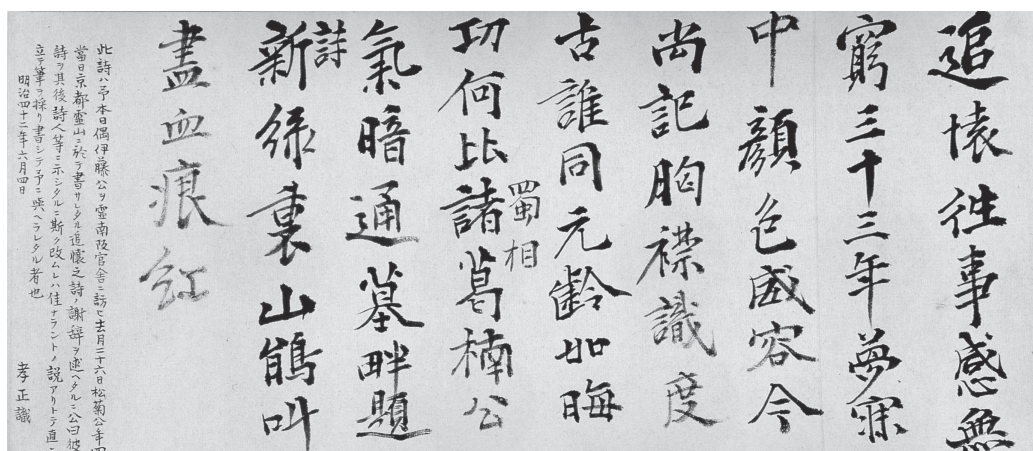 追懐往事感無
窮三十三年夢寐
中顔色威容今
尚記胸襟識度
古誰同元齢如晦
功何比諸葛楠公
蜀相
氣暗通墓畔題
詩
新緑裏山鵑叫
盡血痕紅
此詩ハ予本日偶伊藤公ヲ霊南阪官舎ニ訪ヒ去月二十六日松菊公年
當日京都霊山ニ於テ書サレタル追懐之詩ノ謝辞ヲ述ヘタルニ公曰彼
詩ヲ其後詩人等ニ示シタルニ斯ク改ムレハ佳ナラントノ説アリトテ直ニ
立テ筆ヲ採リ書シテ予ニ呉ヘラレタル者也
明治四十二年六月四日
孝正識